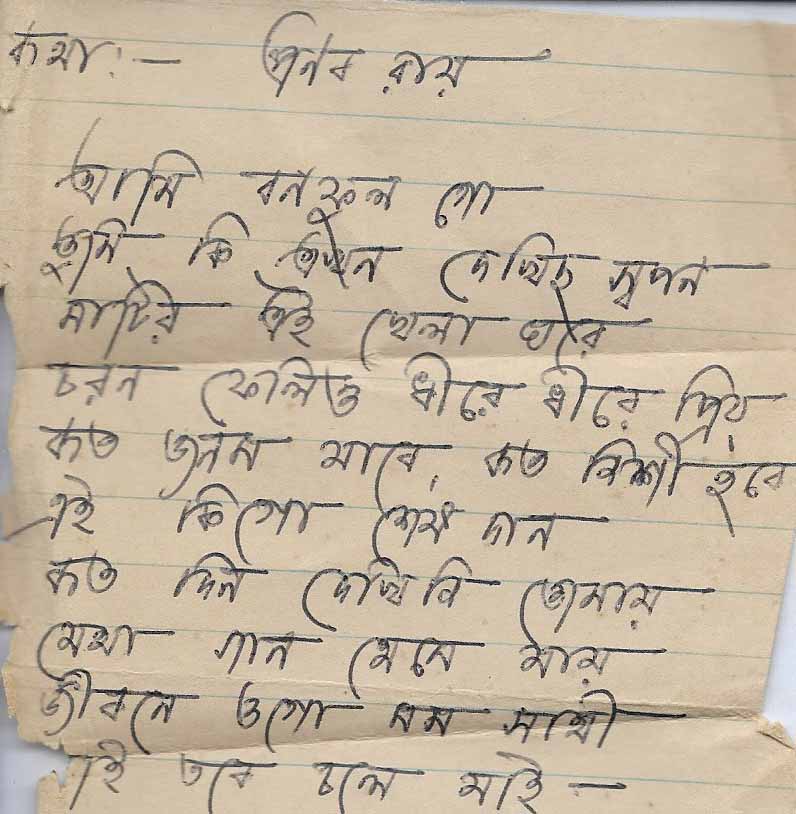 কথা :- প্রনব রায়
আমি বনফুল গো
তুমি কি এখন দেখিছ স্বপন
মাটির এই খেলা ঘরে
চরন ফেলিও ধীরে ধীরে প্রিয়
কত জনম যাবে, কত নিশী হবে
এই কিগো শেষ দান
কত দিন দেখিনি তোমায়
যেথা গান থেমে যায়
জীবনে ওগো মম সাথী
তবে চলে যাই —